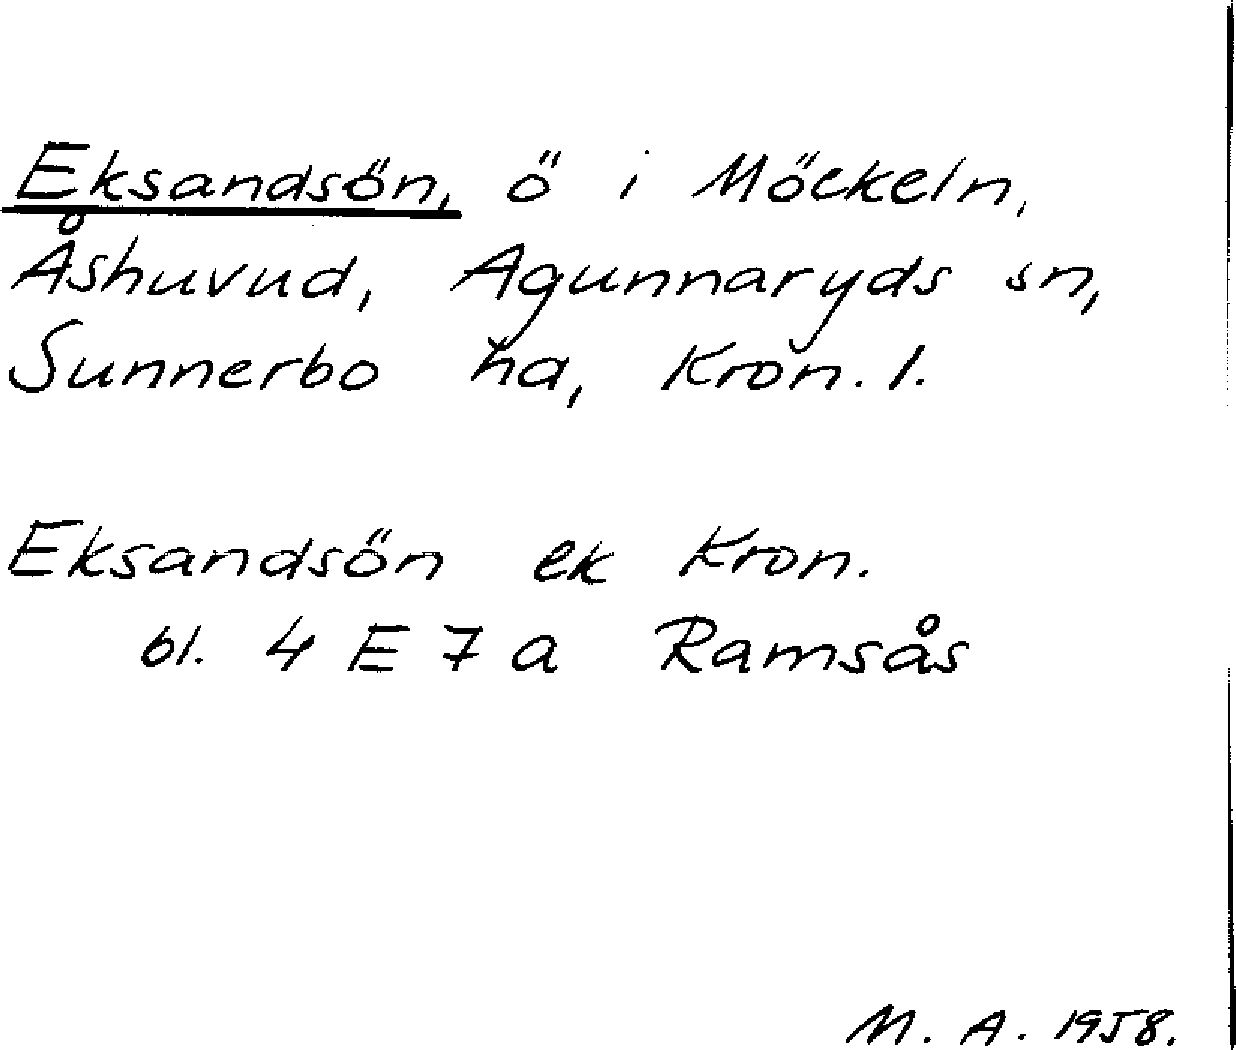 Eksandsön, ö i Möckeln,
Åshuvud, Agunnaryds sn,
Sunnerbo ha, Kron. l.
Eksandsön ek Kron.
bl. 4 E 7 a Ramsås
M. A. 1958.